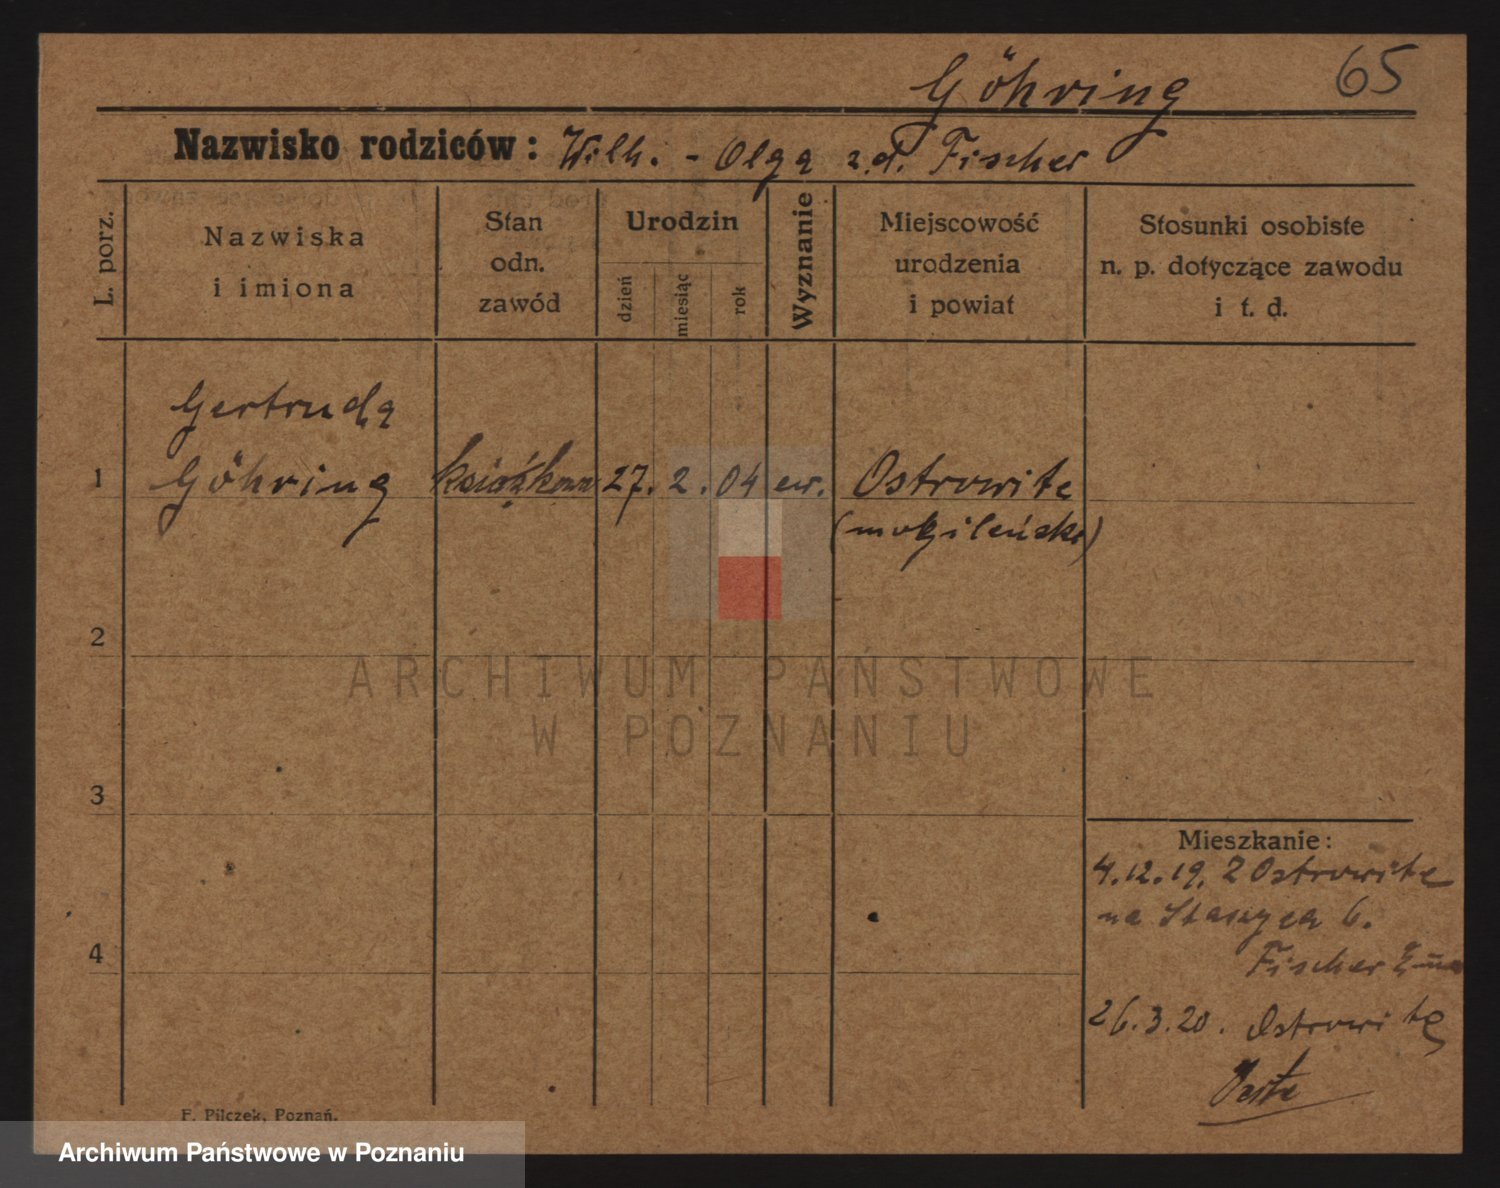 Göhring 65
Nazwisko rodziców: Wilh. - Olga z.d. Fischer
L. porz.
Nazwiska
i imiona
Stan
odn.
zawód
Urodzin
dzień
miesiąc
rok
Wyznanie
Miejscowość
urodzenia
i powiat
Stosunki osobiste
n. p. dotyczące zawodu
i t. d.
Gertruda
1 Göhring książkowa 27. 2. 04 ew. Ostrowite
(mogileńskie)
2
ARCHIWUM PAŃSTWOWE
W POZNANIU
3
Mieszkanie:
4.12.19. Z Ostrowite
na Staszyca 6.
4
Fischer
26.3.20. Ostrowite
F. Pilczek, Poznań.
Archiwum Państwowe w Poznaniu